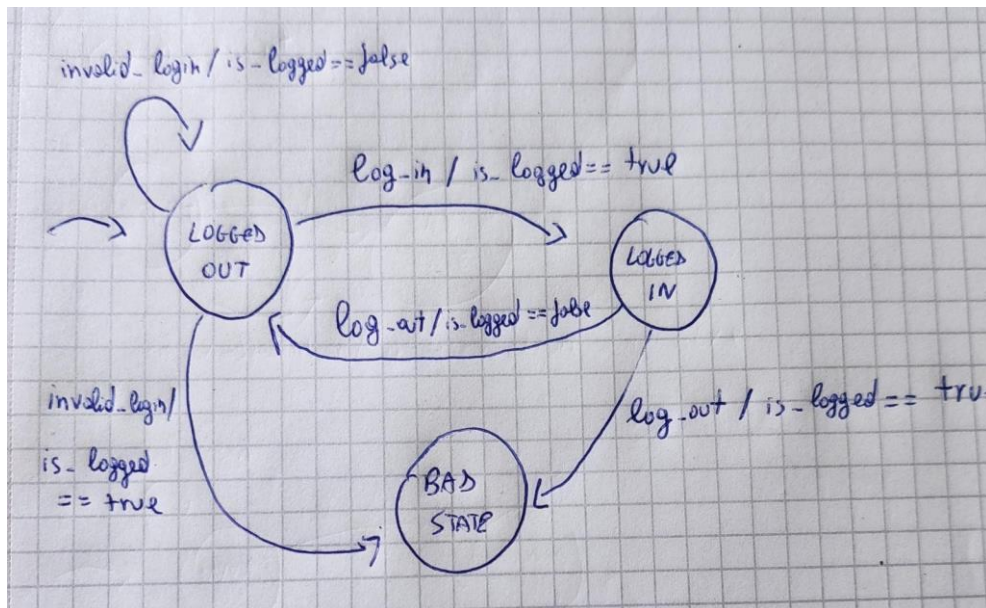 invalid_login / is_logged==false
log_in / is_logged== true
LOGGED
OUT
LOGGED
IN
log_out / is_logged==false
invalid_login/
is_logged
== true
log_out / is_logged== tru
BAD
STATE